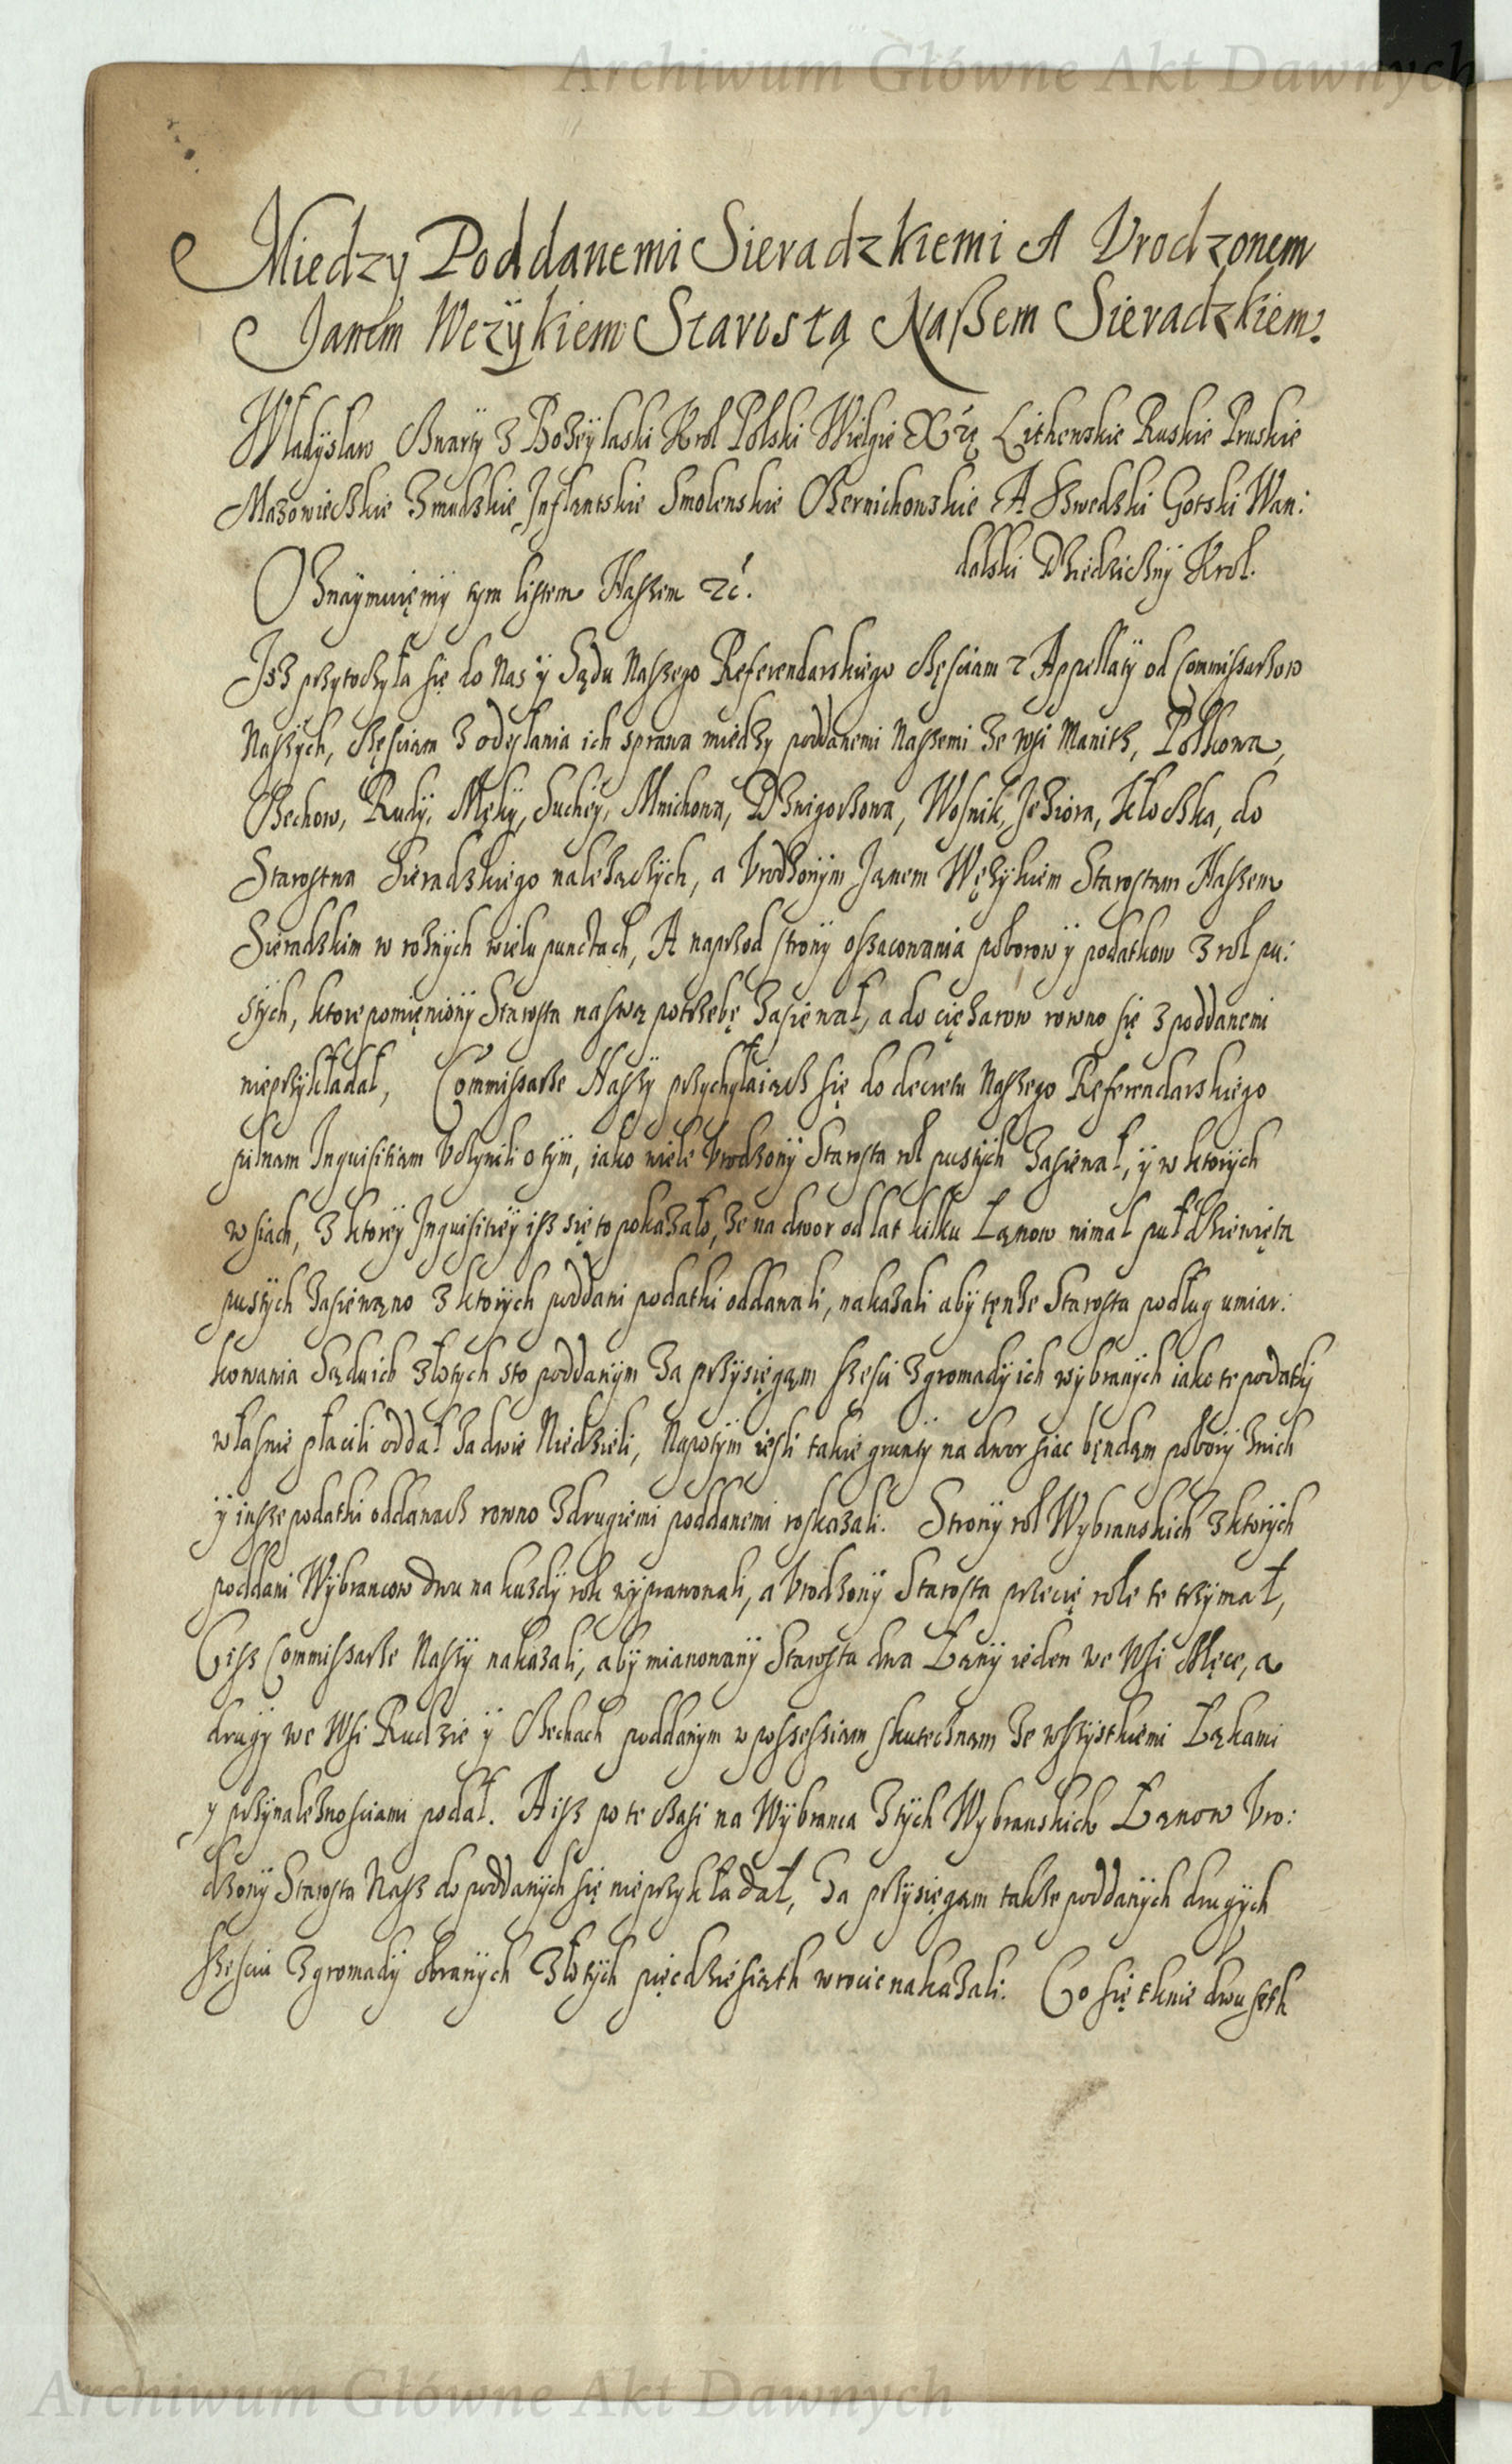 Archiwum Główne Akt Dawnych
Miedzy Poddanemi Sieradzkiemi A Vrodzonem
Janem Wezÿkiem Starostą Naßem Sieradzkiem.
Władÿsław Czwartÿ z Bożeÿ łaski Krol Polski Wielgie Xżę Lithewskie Ruskie Pruskie
Mazowieczkie Zmudzkie Inflantskie Smolenskie Czernichowskie A Szwedzki Gotski Wan:
dalski Dziedzicznÿ Krol.
Oznaÿmuięmÿ tym listem Naszem etć.
Isz przÿtoczÿła się do Nas ÿ Sądu Naszego Referendarskiego częsciam z Appellatÿ od Commissarzow
Naszÿch, częsciam z odesłania ich sprawa miedzÿ poddanemi Naszemi ze wsi Manitz, Polkowa,
Czechow, Rudÿ, Męky, Suchéÿ, Mnichowa, Dznigorzowa, Wosnik, Jeziora, Kłoczka, do
Starostwa Sieradzkiego nalezaczÿch, a Vrodzonÿm Janem Wężykiem Starostam Naszem
Sieradzkim w roznÿch wielu punctach, A naprzod stronÿ oszacowania poborow ÿ podatkow z rol pu:
stÿch, ktore pomięnionÿ Starosta na swą potrzebę zasiewał, a do cięzarow rowno się z poddanemi
nieprzÿkładał, Commissarze Naszÿ przychÿlaiącz się do decretu Naszego Referendarskiego
pilnam Inquisitiam Vczÿnili o tÿm, iako wiele Vrodzonÿ Starosta rol pustÿch zasiewał, ÿ w ktorÿch
wsiach, z ktorÿ Inquisitieÿ isz się to pokazało, że na dwor od lat kilku Łanow nimal puł dziewięta
pustÿch zasiewano z ktorÿch poddani podatki oddawali, nakazali abÿ tęnże Starosta podług umiar:
kowania Sądu ich złotÿch sto poddanÿm za przÿsięgam szesci z gromadÿ ich wÿbranÿch iako te podatkj
własnie płacili oddał za dwie Niedzieli, Napotÿm iesli takie gruntÿ na dwor siac będąm poborÿ znich
ÿ insze podatki oddawacz rowno z drugiemi poddanemi roskazali. Stronÿ rol Wÿbranskich z ktorÿch
poddani Wÿbrancow dwu na kazdÿ rok wÿprawowali, a Vrodzonÿ Starosta przecię role te trzÿmał,
Ciss Commissarze Naszÿ nakazali, abÿ mianowanÿ Starosta dwa Łanÿ ieden we Wsi Męce, a
drugÿ we Wsi Rudzie ÿ Czechach poddanÿm w possessiam skutecznam ze wszÿstkiemi Łąkami
y przÿnaleznosciami podał. A isz po te czasi na Wÿbranca z tÿch Wÿbranskich Łanow Vro:
dzonÿ Starosta Nasz do poddanÿch się nie przÿkładał, Za przÿsięgam także poddanÿch drugÿch
szesciu z gromadÿ obranÿch złotÿch pięcdziesiąth wrocic nakazali. Co się tknie dwu seth
Archiwum Główne Akt Dawnych